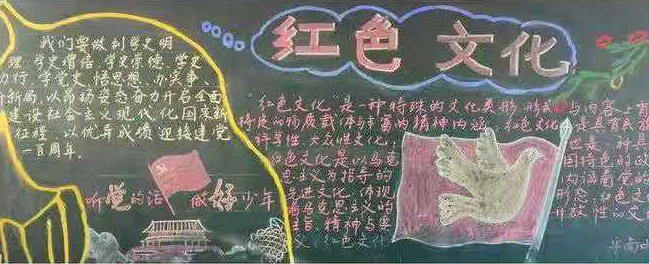 红色 文化
我们要做到学史明
理、学史增信、学史崇德、学史
力行、学党史、悟思想、办实事、
新局,以昂扬姿态奋力开启全面
建设社会主义现代化国家新
征程,以优异成绩迎接建党
一百周年。
听党的话 做好少年
"红色文化"是一种特殊的文化类形
特质的物质载体与丰富的精神内涵
科学性、大众性文化,
红色文化是以马克
思主义为指导的
先进文化,体现
着马克思主义的
精神与
义、红色文化
与内容
是具有
也是一种具
国特色的
内涵着党的
形态,红色文
开放性的文